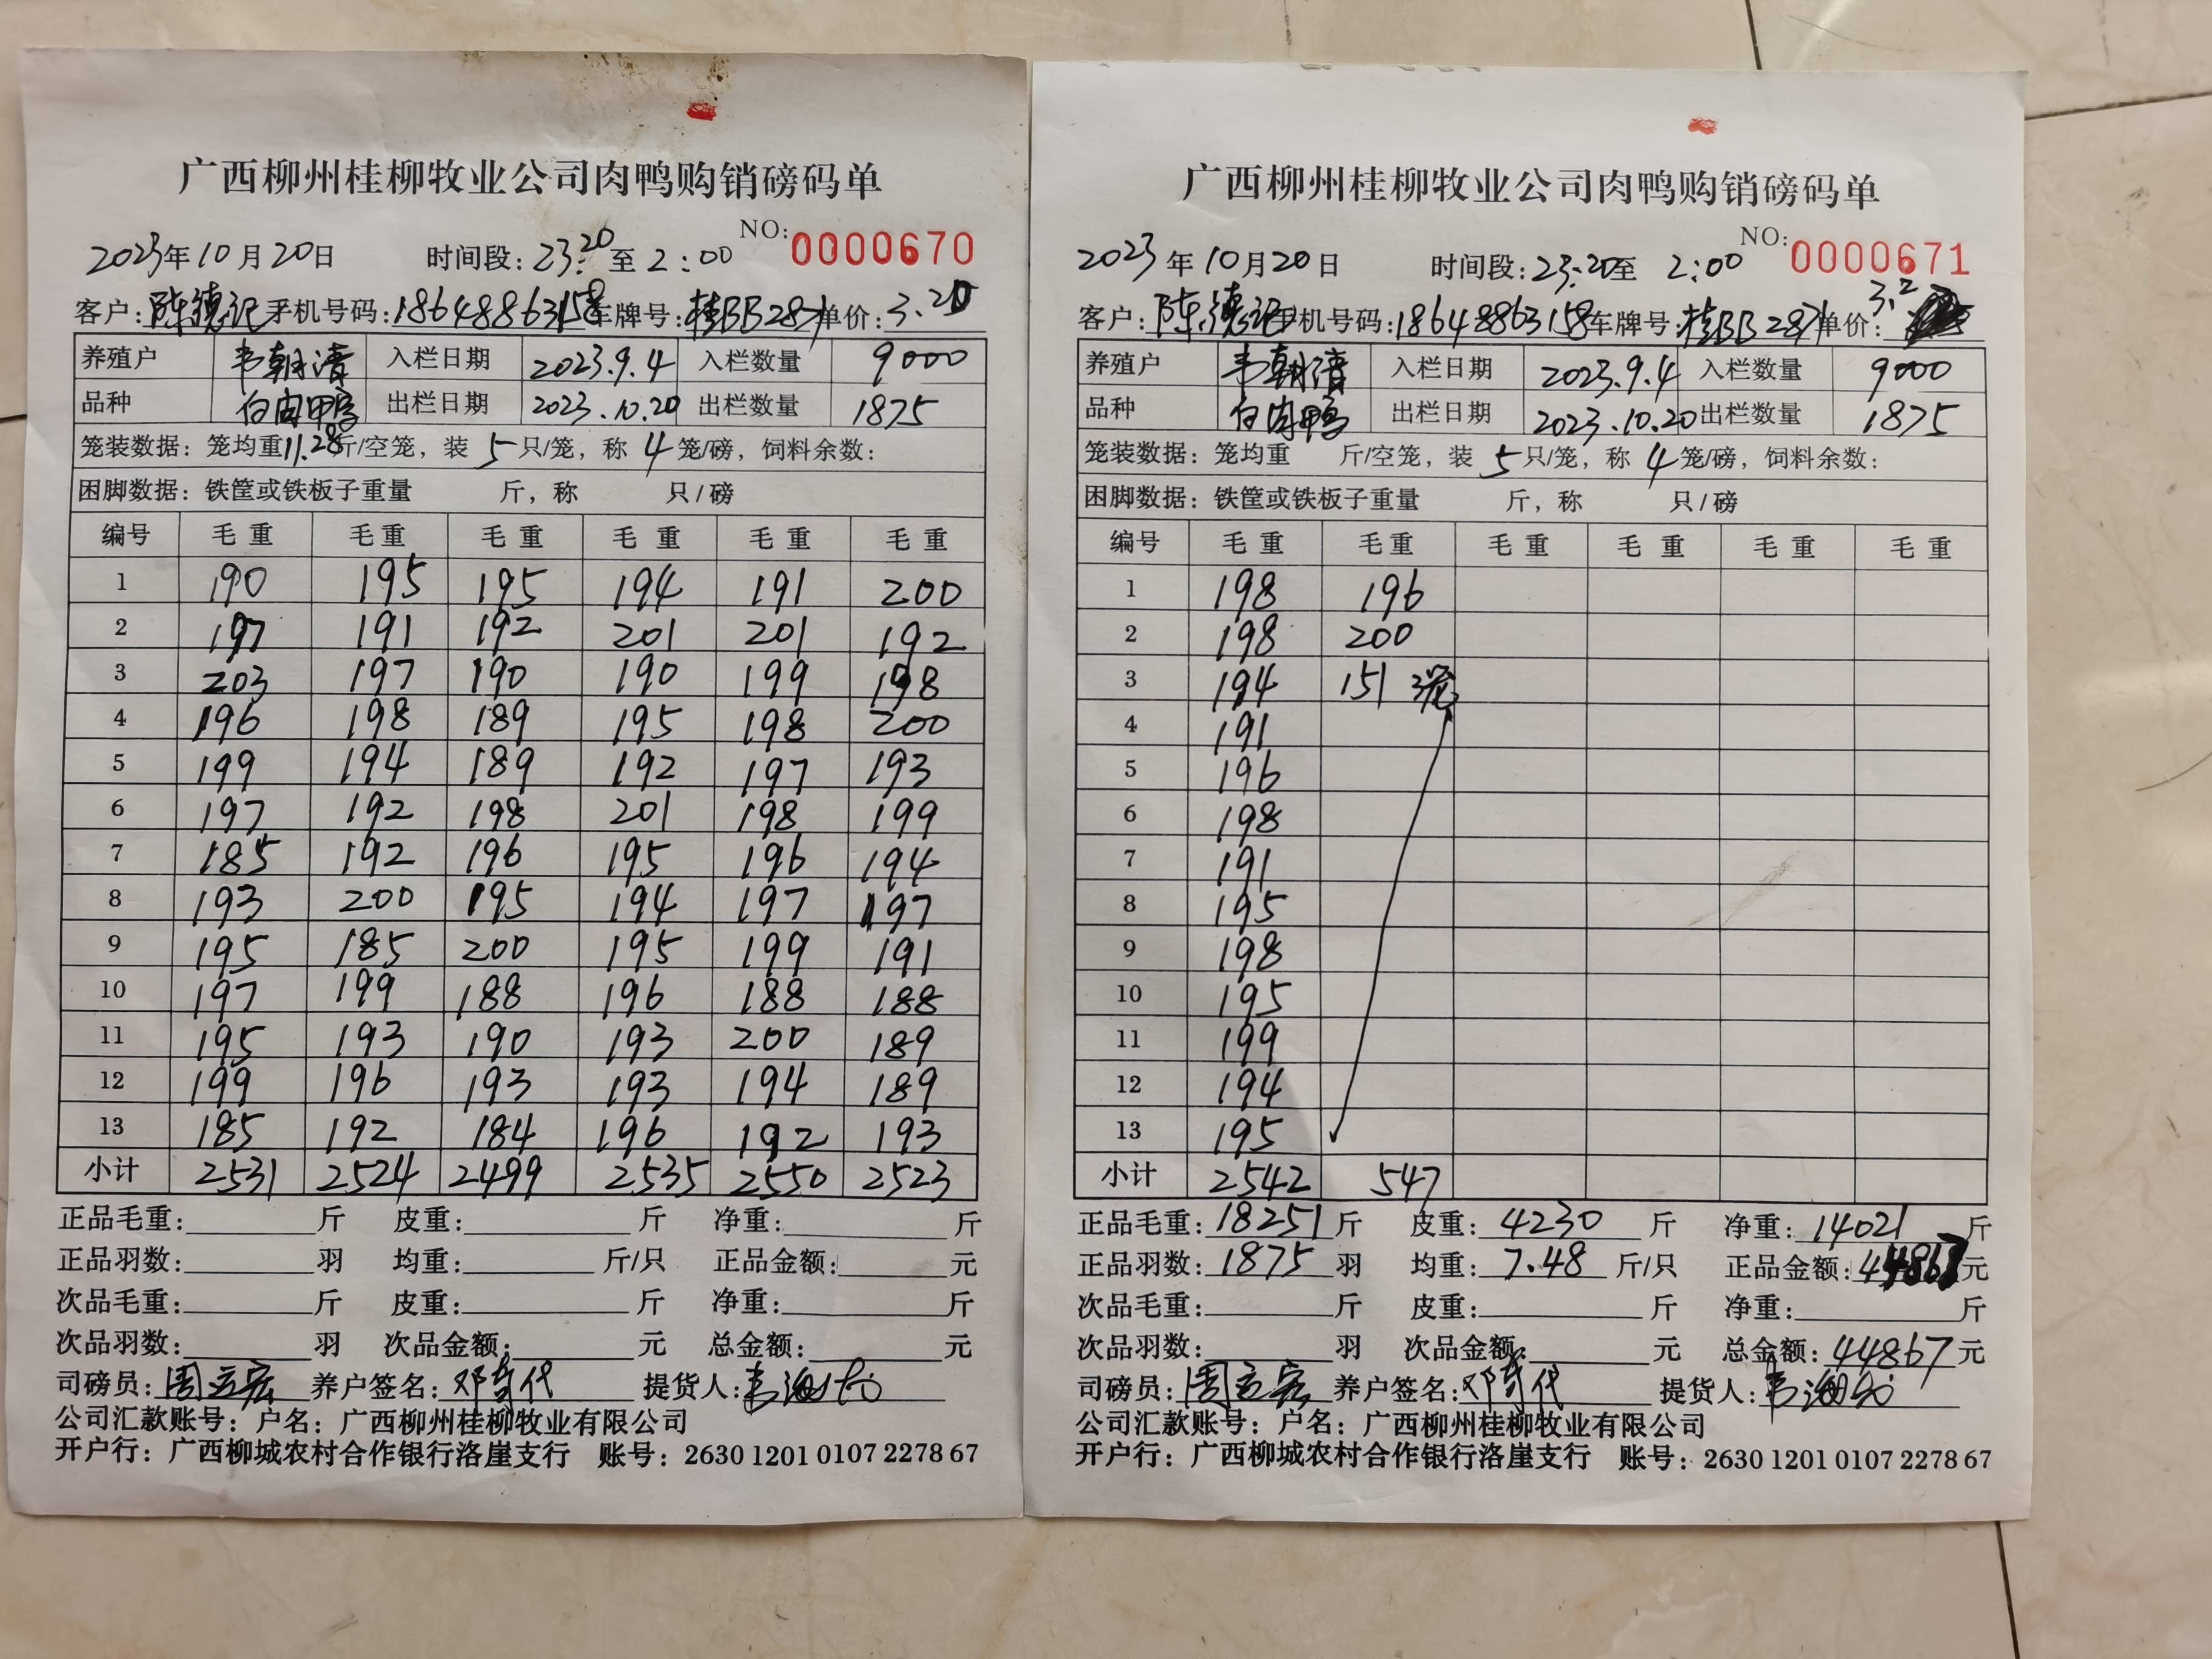 广西柳州桂柳牧业公司肉鸭购销磅码单
NO: 0000670
2023年10月20日 时间段: 23:20至2:00
客户: 陈德记 手机号码: 18648863158 车牌号: 桂BB287 单价: 3.20
养殖户 韦朝清 入栏日期 2023.9.4 入栏数量 9000
品种 白肉鸭 出栏日期 2023.10.20 出栏数量 1875
笼装数据: 笼均重11.28斤/空笼, 装5只/笼, 称4笼/磅, 饲料余数:
困脚数据: 铁筐或铁板子重量 斤, 称 只/磅
编号 毛重 毛重 毛重 毛重 毛重 毛重
1 190 195 195 194 191 200
2 197 191 192 201 201 192
3 203 197 190 190 199 198
4 196 198 189 195 198 200
5 199 194 189 192 197 193
6 197 192 198 201 198 199
7 185 192 196 195 196 194
8 193 200 195 194 197 197
9 195 185 200 195 199 191
10 197 199 188 196 188 188
11 195 193 190 193 200 189
12 199 196 193 193 194 189
13 185 192 184 196 192 193
小计 2531 2524 2499 2535 2550 2523
正品毛重: 斤 皮重: 斤 净重: 斤
正品羽数: 羽 均重: 斤/只 正品金额: 元
次品毛重: 斤 皮重: 斤 净重: 斤
次品羽数: 羽 次品金额: 元 总金额: 元
司磅员: 周立宏 养户签名: 邓寿代 提货人: 韦海
公司汇款账号: 户名: 广西柳州桂柳牧业有限公司
开户行: 广西柳城农村合作银行洛崖支行 账号: 2630 1201 0107 2278 67
广西柳州桂柳牧业公司肉鸭购销磅码单
NO: 0000671
2023年10月20日 时间段: 23:20至2:00
客户: 陈德记 手机号码: 18648863158 车牌号: 桂BB287 单价: 3.2
养殖户 韦朝清 入栏日期 2023.9.4 入栏数量 9000
品种 白肉鸭 出栏日期 2023.10.20 出栏数量 1875
笼装数据: 笼均重 斤/空笼, 装5只/笼, 称4笼/磅, 饲料余数:
困脚数据: 铁筐或铁板子重量 斤, 称 只/磅
编号 毛重 毛重 毛重 毛重 毛重 毛重
1 198 196
2 198 200
3 194 151 3笼
4 191
5 196
6 198
7 191
8 195
9 198
10 195
11 199
12 194
13 195
小计 2542 547
正品毛重: 18251斤 皮重: 4230斤 净重: 14021斤
正品羽数: 1875羽 均重: 7.48斤/只 正品金额: 44867元
次品毛重: 斤 皮重: 斤 净重: 斤
次品羽数: 羽 次品金额: 元 总金额: 44867元
司磅员: 周立宏 养户签名: 邓寿代 提货人: 韦海
公司汇款账号: 户名: 广西柳州桂柳牧业有限公司
开户行: 广西柳城农村合作银行洛崖支行 账号: 2630 1201 0107 2278 67